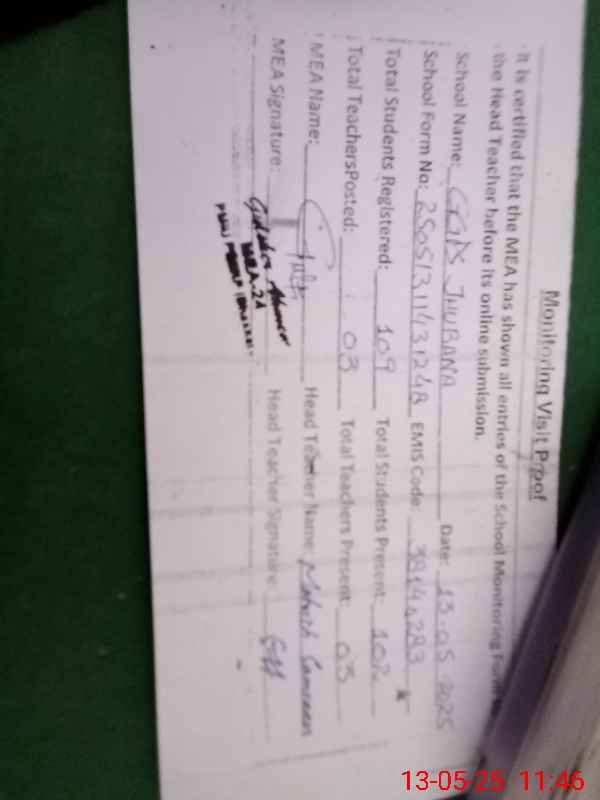 Monitoring Visit Proof
It is certified that the MEA has shown all entries of the School Monitoring Form
the Head Teacher before its online submission.
School Name: GGPS JHUBANA Date: 13.05.2025
School Form No: EMIS Code:
Total Students Registered: 109 Total Students Present: 102
Total TeachersPosted: 03 Total Teachers Present: 03
MEA Name: Head Teacher Name:
MEA Signature: Head Teacher Signature:
MEA-24
13-05-25 11:46